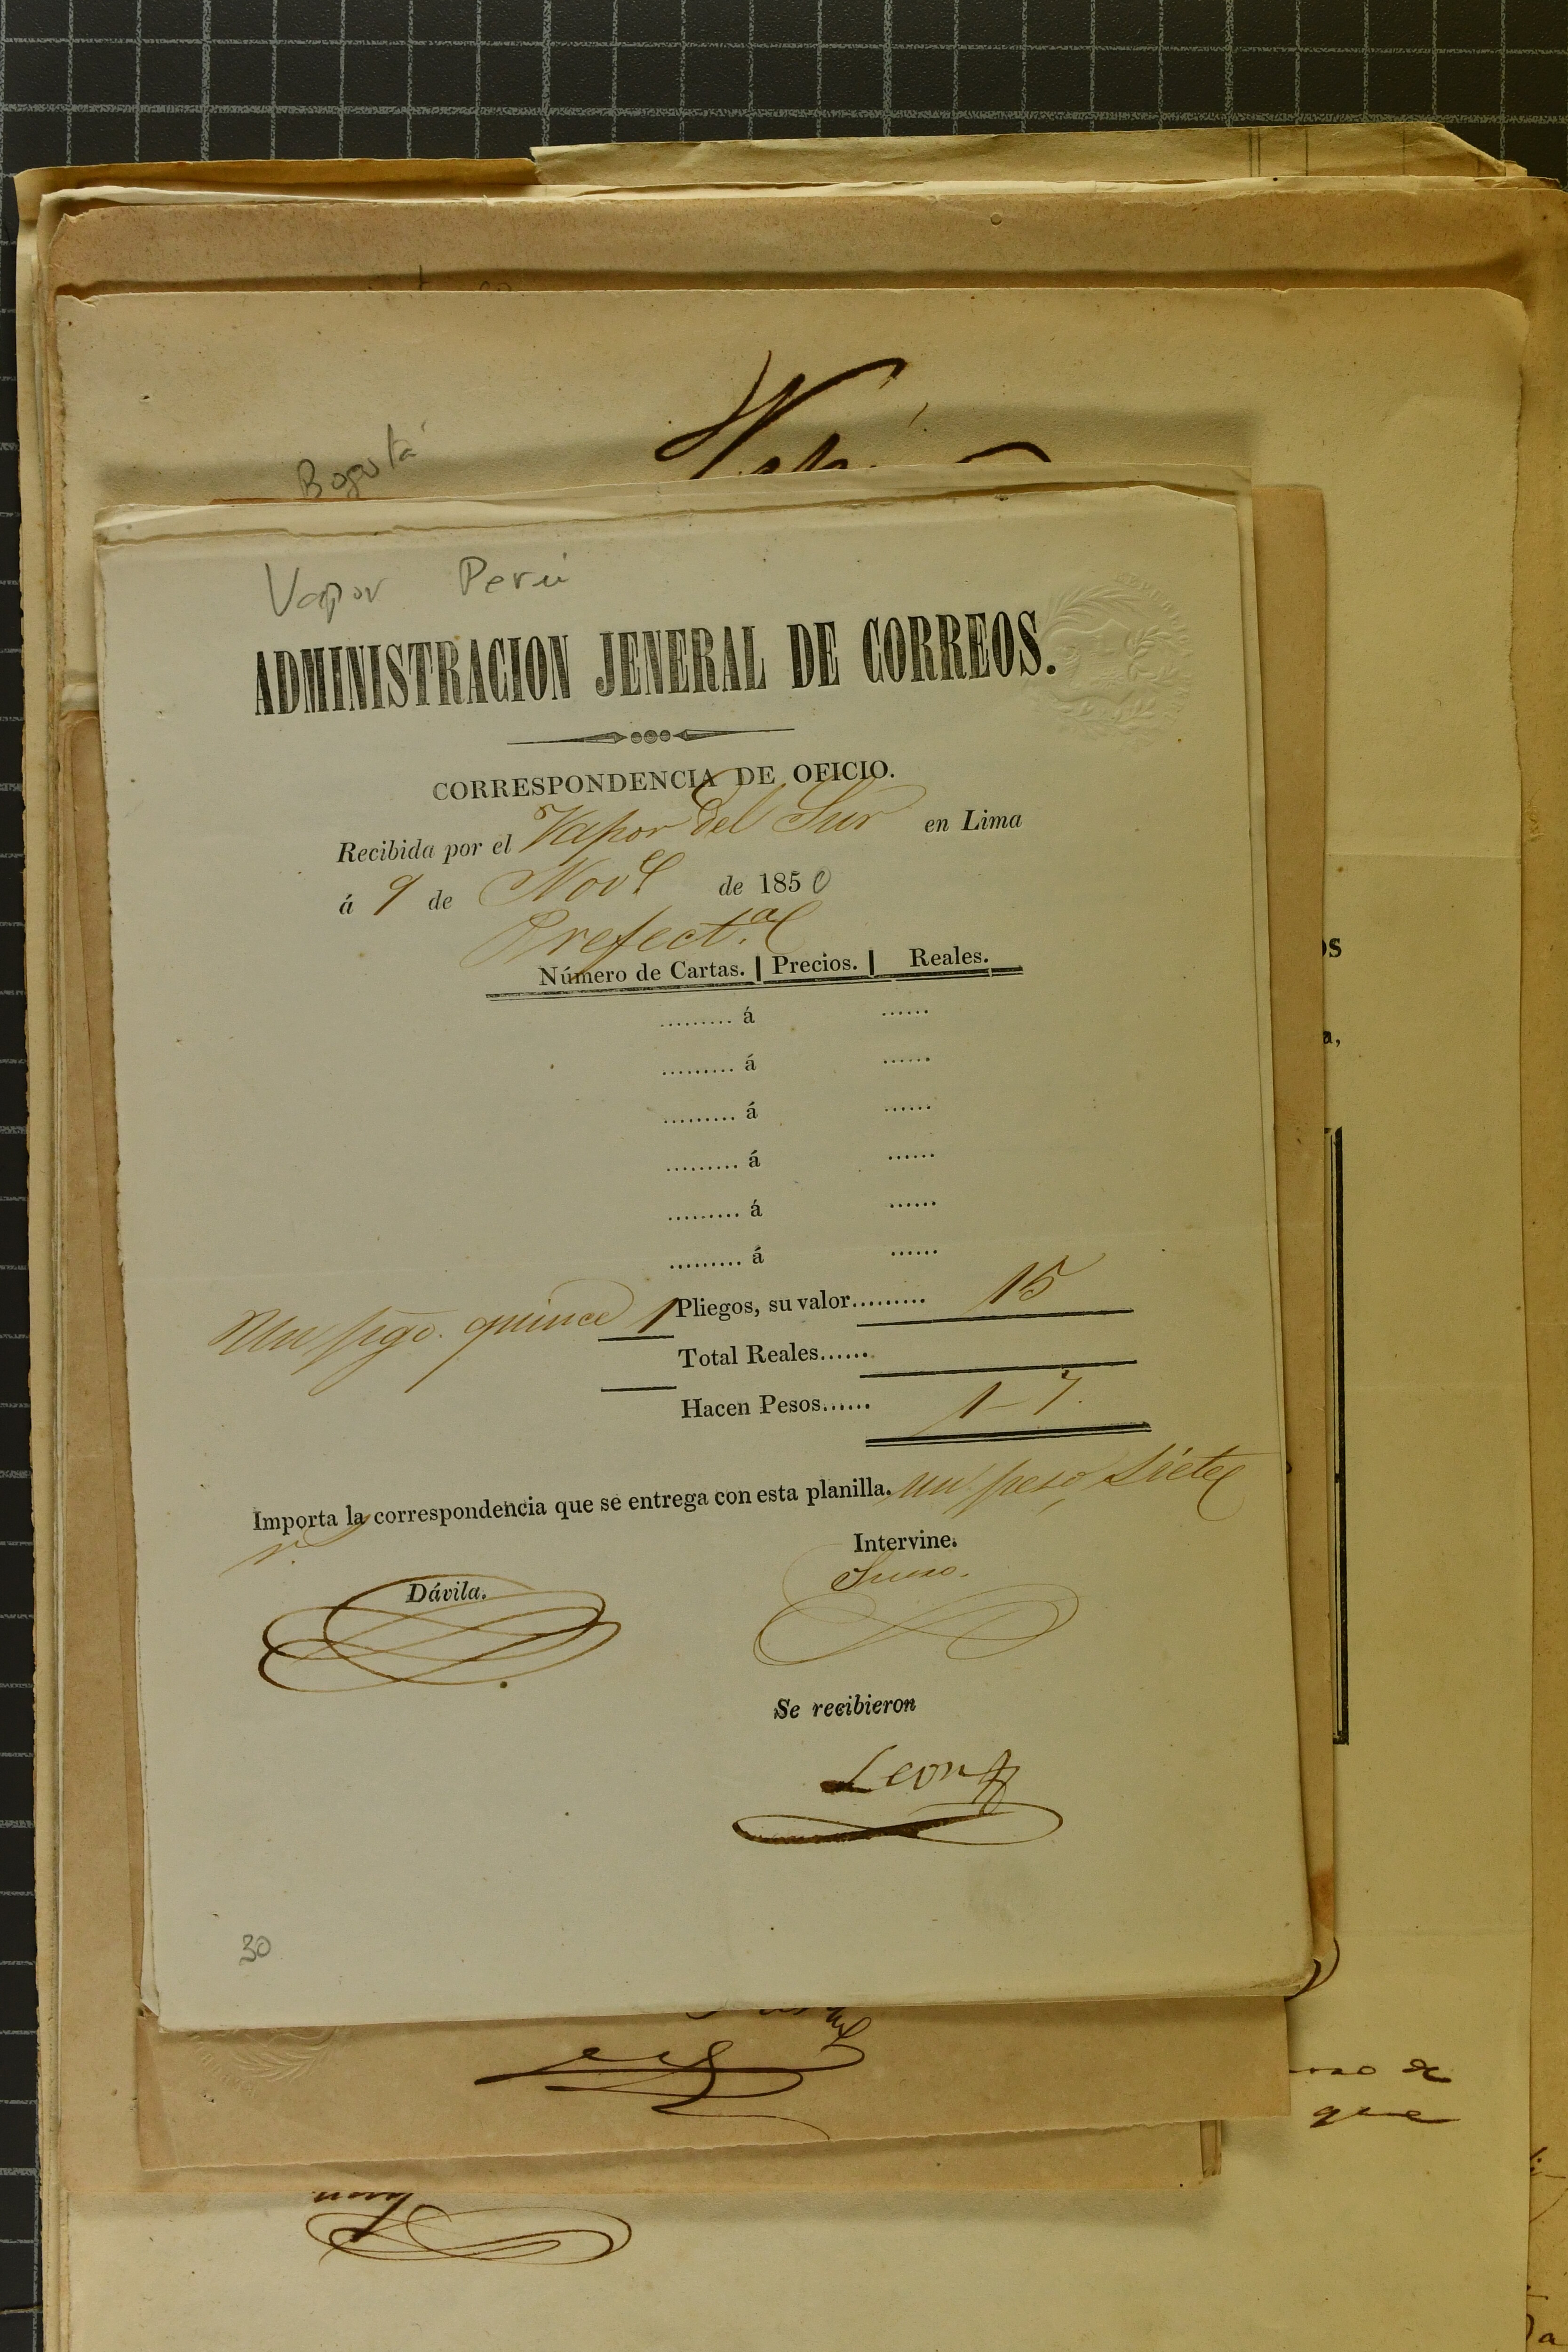 Bogotá
Vapor Perú
ADMINISTRACION JENERAL DE CORREOS.
CORRESPONDENCIA DE OFICIO.
Recibida por el Vapor del Sur en Lima
á 9 de Nove de 1850
Prefect.a
Número de Cartas. | Precios. | Reales.
......... á ......
......... á ......
......... á ......
......... á ......
......... á ......
......... á ......
Un pgo. quince 1 Pliegos, su valor......... 15
Total Reales......
Hacen Pesos...... 1-7.
Importa la correspondencia que se entrega con esta planilla. un peso siete
r.
Intervine.
Dávila.
Se recibieron
Leon
30
os
a,
de
que